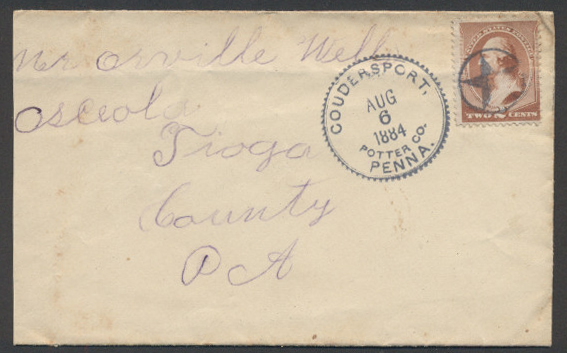 Mr orville Well
osceola
Tioga
County
PA
COUDERSPORT,
AUG
6
1884
POTTER CO.
PENNA.
TWO CENTS